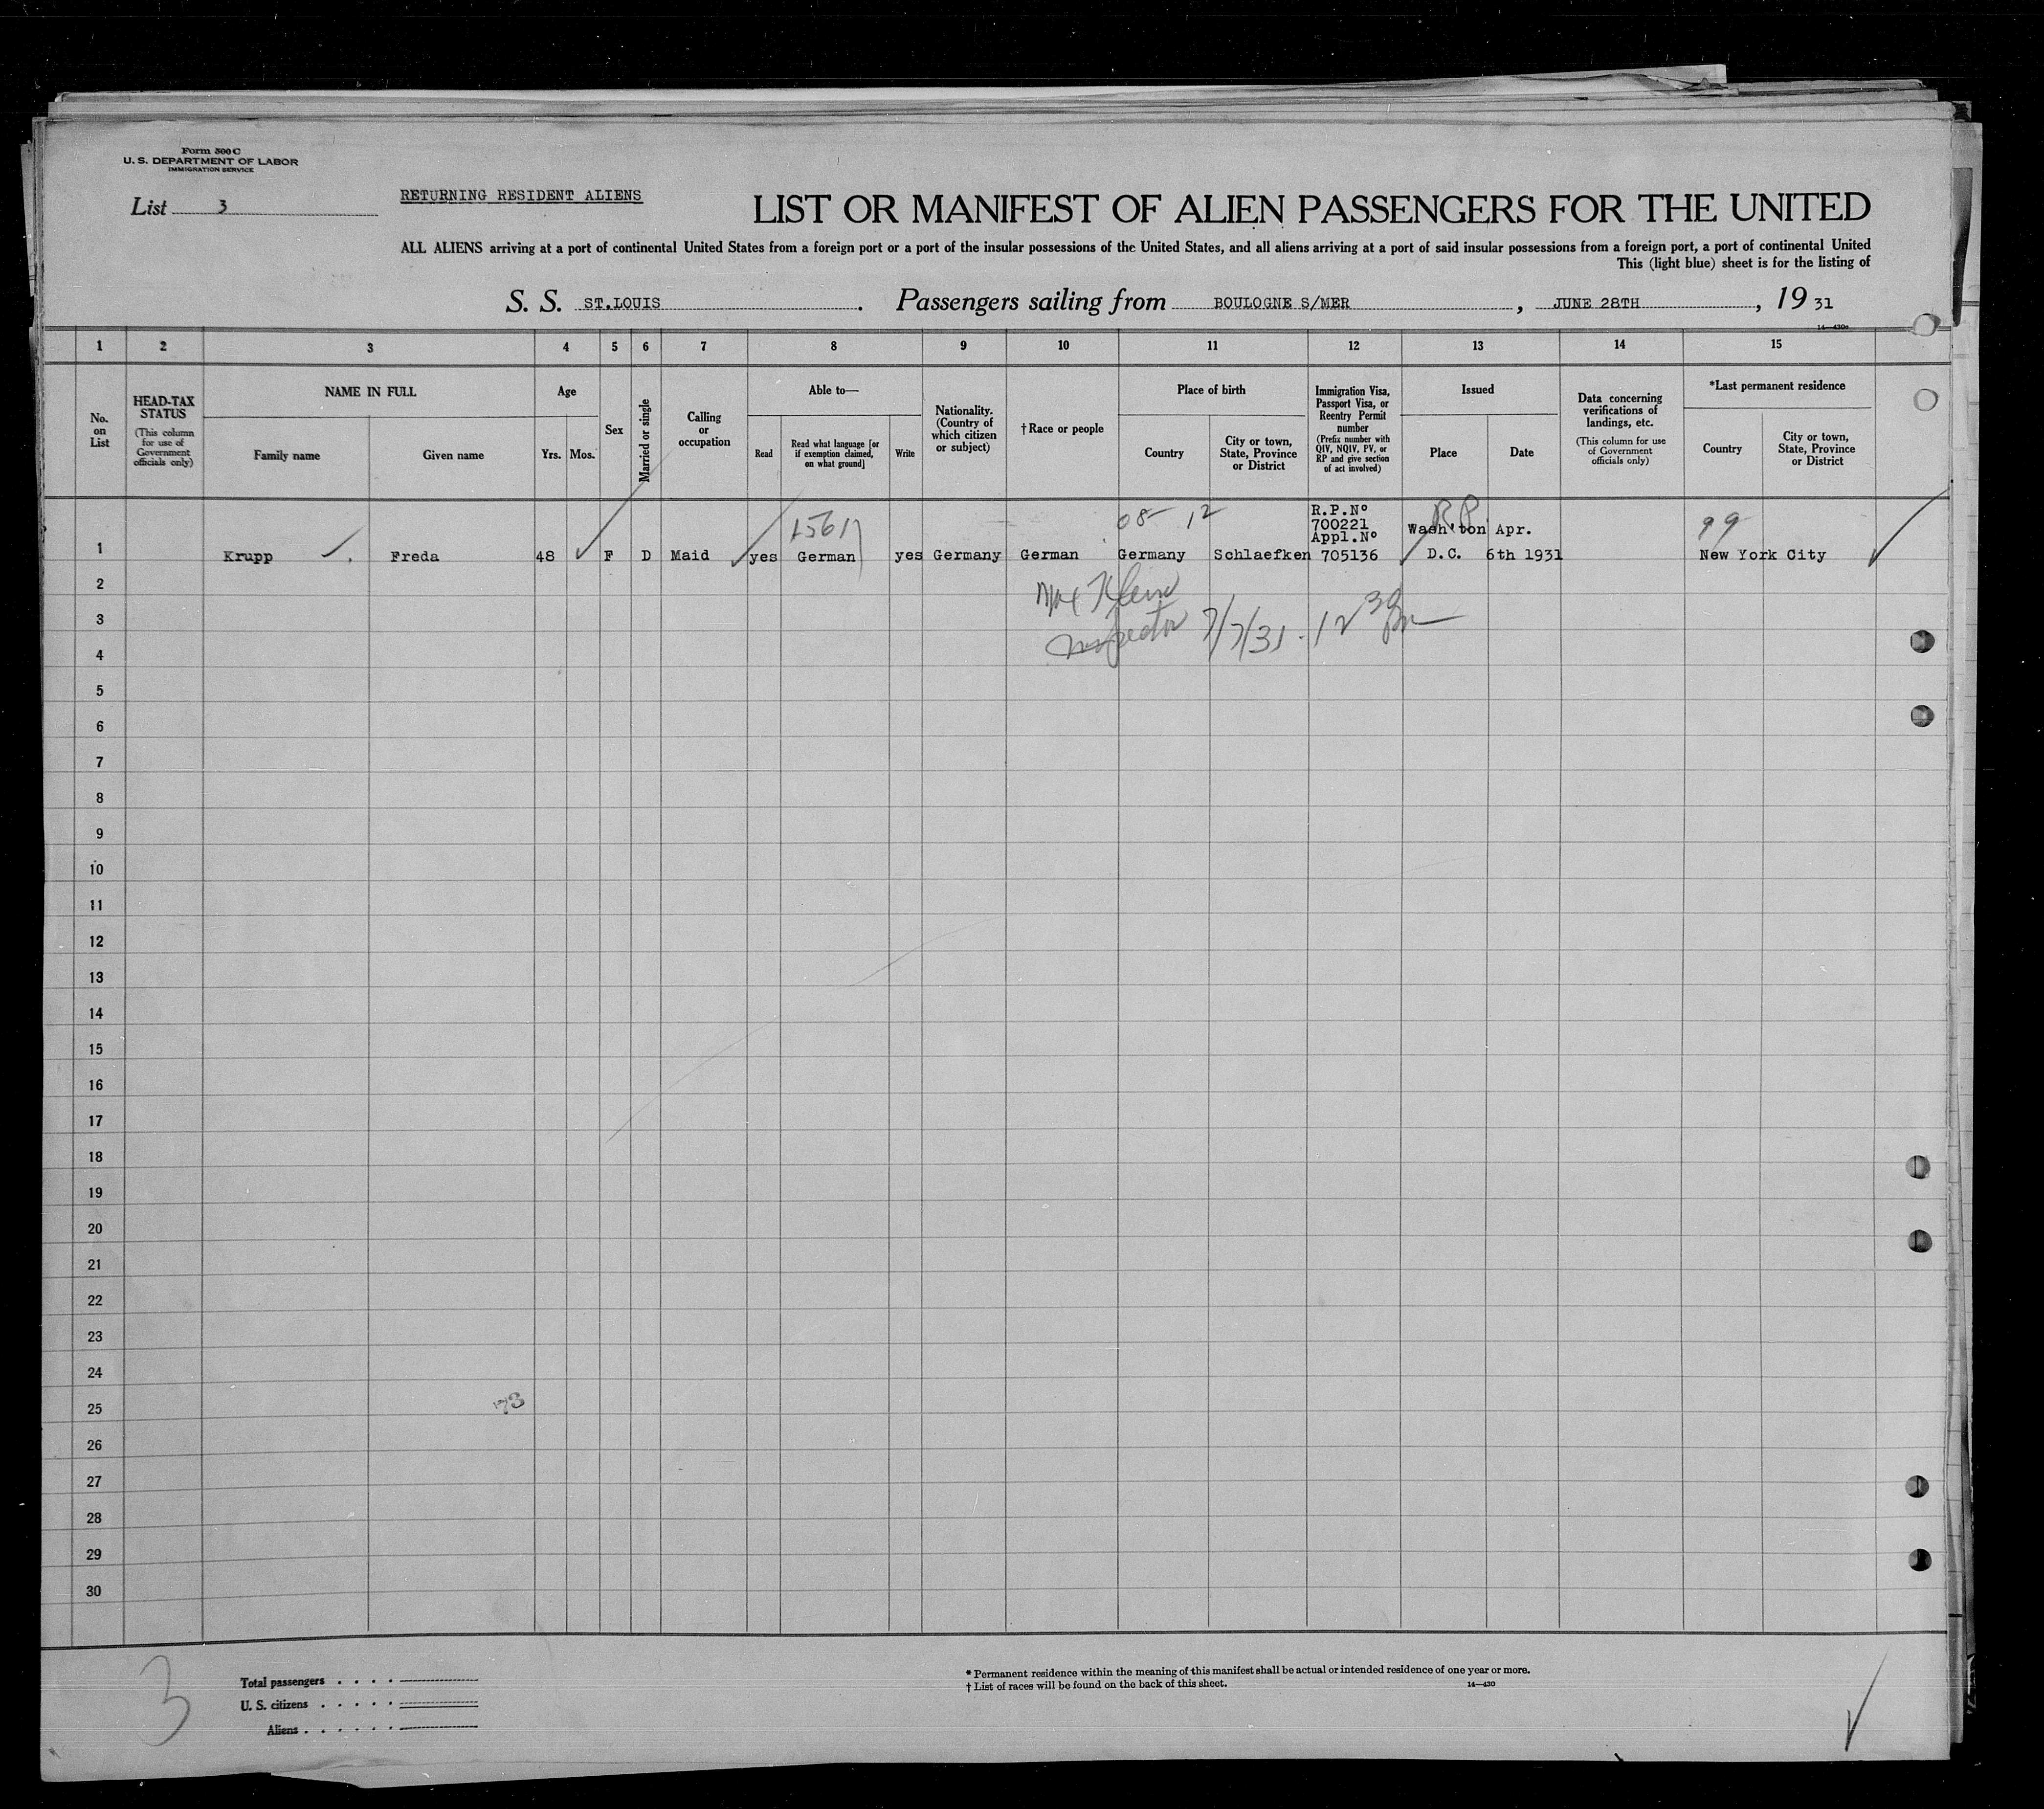 Form 500 C
U. S. DEPARTMENT OF LABOR
IMMIGRATION SERVICE
List 3
RETURNING RESIDENT ALIENS
LIST OR MANIFEST OF ALIEN PASSENGERS FOR THE UNITED
ALL ALIENS arriving at a port of continental United States from a foreign port or a port of the insular possessions of the United States, and all aliens arriving at a port of said insular possessions from a foreign port, a port of continental United
This (light blue) sheet is for the listing of
S. S. ST.LOUIS . Passengers sailing from BOULOGNE S/MER , JUNE 28TH , 19 31
14—430a
1 2 3 4 5 6 7 8 9 10 11 12 13 14 15
No. on List
HEAD-TAX STATUS
(This column for use of Government officials only)
NAME IN FULL
Family name
Given name
Age
Yrs. Mos.
Sex
Married or single
Calling or occupation
Able to—
Read
Read what language [or if exemption claimed, on what ground]
Write
Nationality. (Country of which citizen or subject)
†Race or people
Place of birth
Country
City or town, State, Province or District
Immigration Visa, Passport Visa, or Reentry Permit number
(Prefix number with QIV, NQIV, PV, or RP and give section of act involved)
Issued
Place
Date
Data concerning verifications of landings, etc.
(This column for use of Government officials only)
*Last permanent residence
Country
City or town, State, Province or District
R.P.Nº
08 12
RP
99
700221
Appl.Nº
Wash'ton Apr.
1 Krupp Freda 48 F D Maid yes German yes Germany German Germany Schlaefken 705136 D.C. 6th 1931 New York City
2
Max Klein
3
Inspector 7/7/31
4
5
6
7
8
9
10
11
12
13
14
15
16
17
18
19
20
21
22
23
24
25
73
26
27
28
29
30
3
Total passengers . . . .
U. S. citizens . . . . .
Aliens . . . . . .
* Permanent residence within the meaning of this manifest shall be actual or intended residence of one year or more.
† List of races will be found on the back of this sheet.
14—430